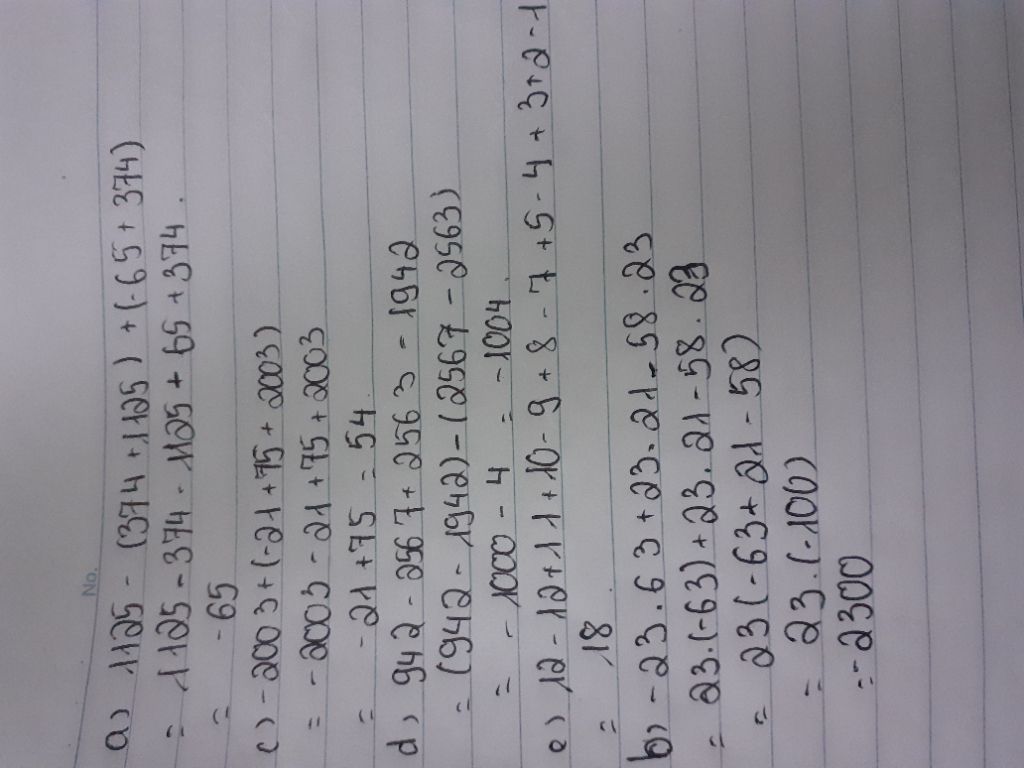 No.
a) 1125 - (374 + 1125) + (-65 + 374)
= 1125 - 374 - 1125 + 65 + 374.
= -65
c) -2003 + (-21 + 75 + 2003)
= -2003 - 21 + 75 + 2003
= -21 + 75 = 54.
d) 942 - 2567 + 2563 - 1942
= (942 - 1942) - (2567 - 2563)
= -1000 - 4 = -1004.
e) 12 - 12 + 11 + 10 - 9 + 8 - 7 + 5 - 4 + 3 + 2 - 1
= 18
b) -23. 63 + 23. 21 - 58. 23
= 23. (-63) + 23. 21 - 58. 23
= 23 (-63 + 21 - 58)
= 23. (-100)
= -2300